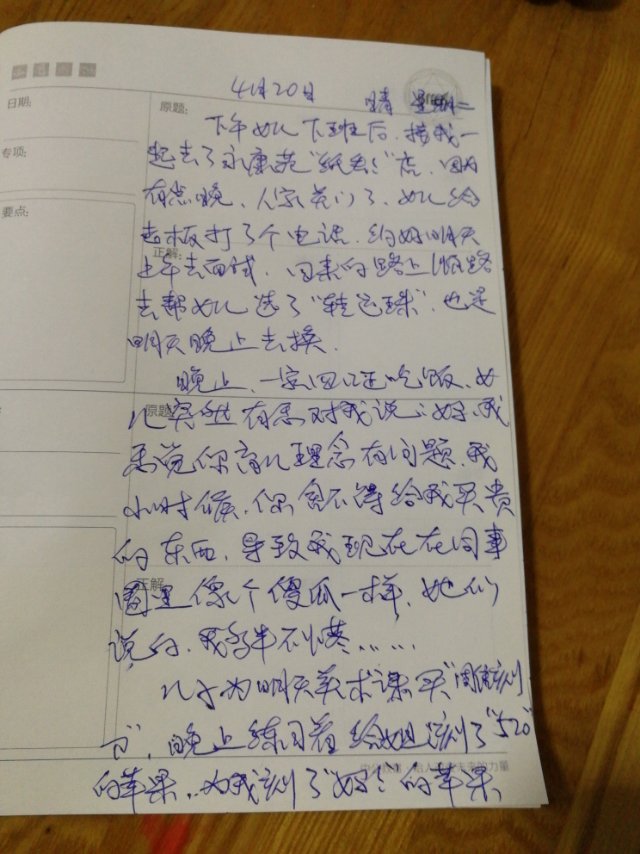 日期:
原题:
4月20日 晴 星期二
下午女儿下班后,接我一
专项:
起去了永康苑"纸委!"店,因为
有点晚,人家关门了,女儿给
要点:
老板打了个电话,约好明天
正解:
上午去面试,回来的路上顺路
去帮女儿选了"转运珠",也是
明天晚上去换.
晚上,一家四口正吃饭,女
原题
儿突然有意对我说:"妈,我
要说你育儿理念有问题,我
小时候,你舍不得给我买贵
的东西,导致我现在在同事
正解
圈里像个傻瓜一样,她们
说的,我多半不懂……
儿子为明天美术课买"陶健刻
刀",晚上练习着给姐刻了"520"
的苹果,为我刻了"妈!"的苹果